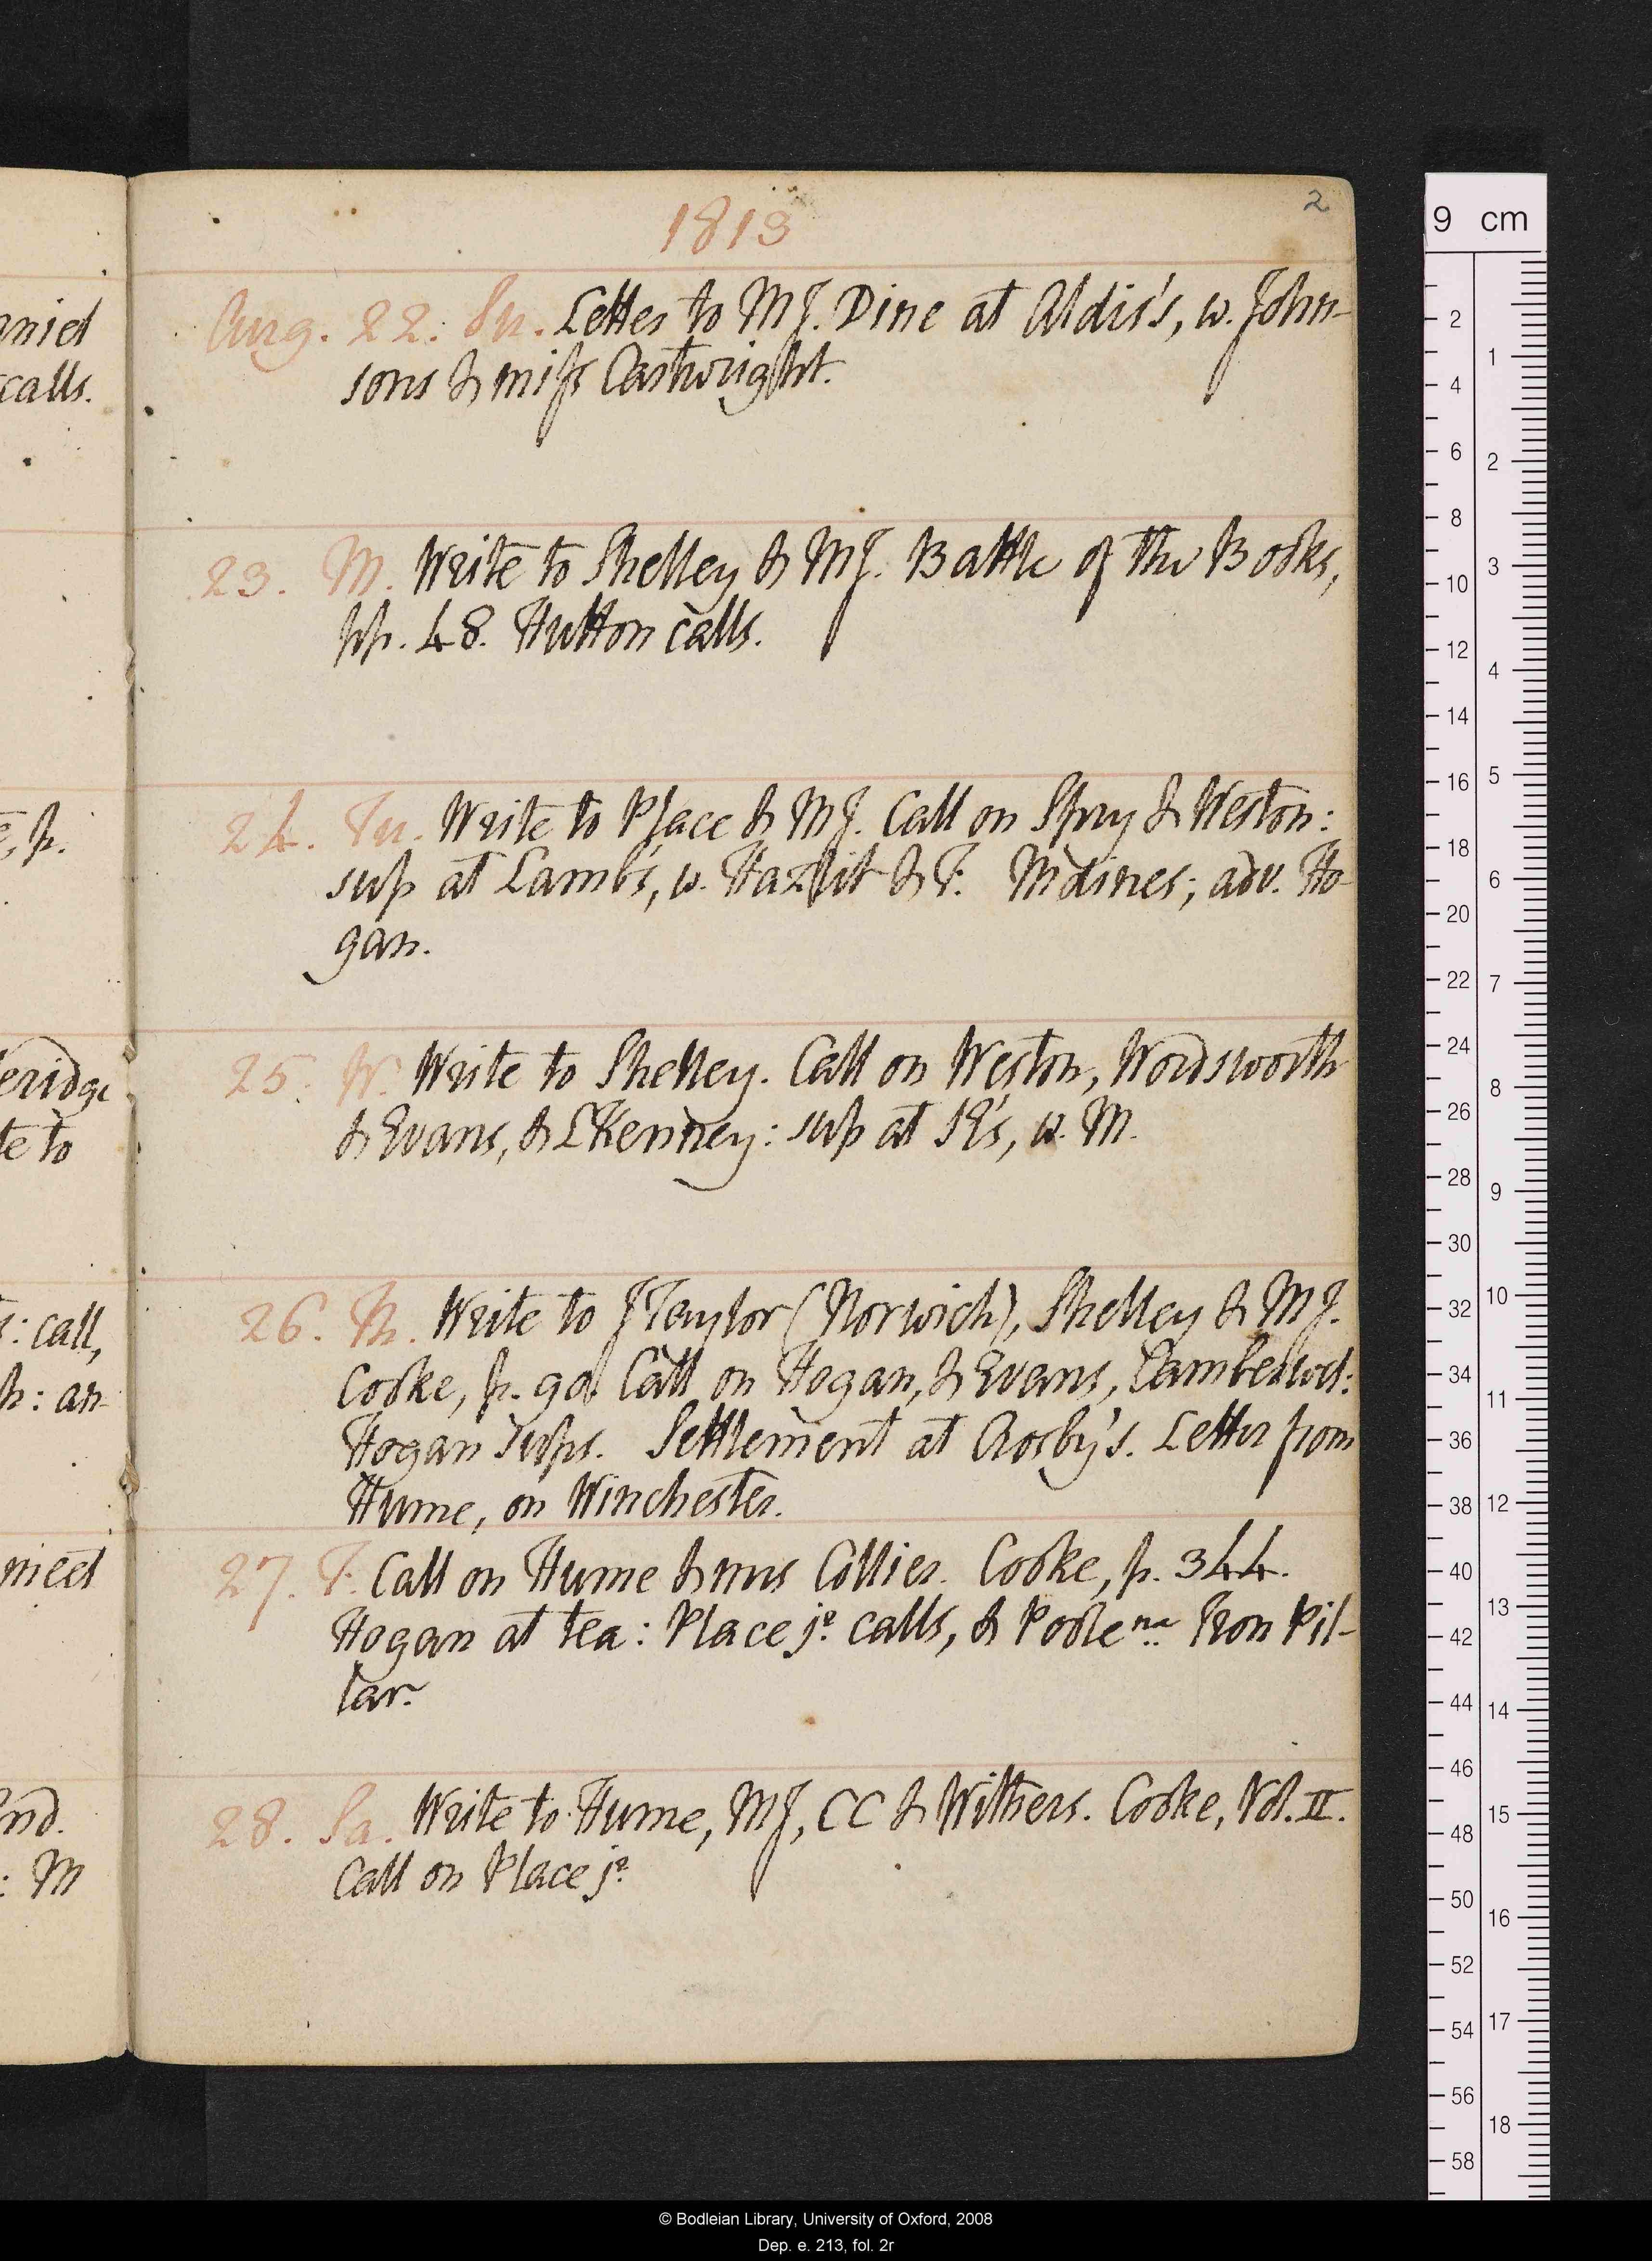 2
1813
Aug. 22. Su. Letter to MJ. Dine at Aldis's, w. John-
sons & miss Cartwright.
23. M. Write to Shelley & MJ. Battle of the Books,
pp. 48. Hutton calls.
24. Tu. Write to Place & MJ. Call on Spry & Weston:
sup at Lamb's, w. Hazlit & F. M dines; adv. Ho-
gan.
25. W. Write to Shelley. Call on Weston, Wordsworth
& Evans, & L'Kenney: sup at HR's, w. M.
26. Th. Write to J Taylor (Norwich), Shelley & MJ.
Cooke, p. 90. Call on Hogan, & Evans, Camberwel:
Hogan sups. Settlement at Crosby's. Letter from
Hume, on Winchester.
27. F. Call on Hume & mrs Collier. Cooke, p. 344.
Hogan at tea: Place jr. calls, & Poole na Iron Pil-
lar.
28. Sa. Write to Hume, MJ, CC & Withers. Cooke, Vol. II.
Call on Place jr.
calls.
eridge
te to
: call,
h: an-
meet
: M
9 cm
2
4
6
8
10
12
14
16
18
20
22
24
26
28
30
32
34
36
38
40
42
44
46
48
50
52
54
56
58
1
2
3
4
5
6
7
8
9
10
11
12
13
14
15
16
17
18
© Bodleian Library, University of Oxford, 2008
Dep. e. 213, fol. 2r